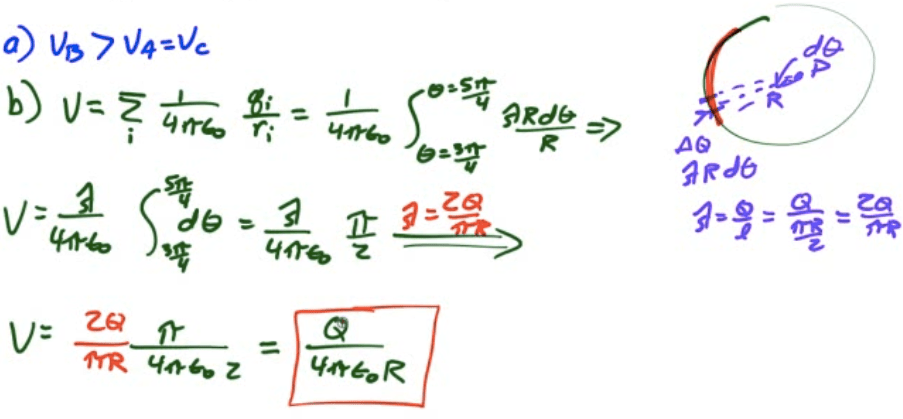 a) V_B > V_A = V_C
b) V = Σ_i 1/(4πε₀) q_i/r_i = 1/(4πε₀) ∫_{θ=3π/4}^{θ=5π/4} λRdθ/R ⇒
V = λ/(4πε₀) ∫_{3π/4}^{5π/4} dθ = λ/(4πε₀) π/2 λ = 2Q/(πR) ⇒
V = 2Q/(πR) π/(4πε₀ 2) = Q/(4πε₀R)
dθ
P
R
ΔQ
λRdθ
λ = Q/l = Q/(πR/2) = 2Q/(πR)